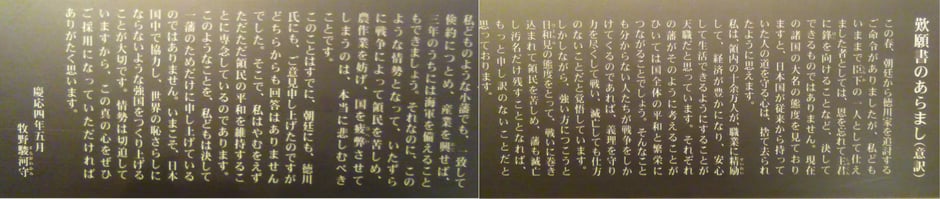 歎願書のあらまし(意訳)
この春、朝廷から徳川家を追討する
ご命令がありましたが、私ども
はいままで臣下の一人として仕え
ました名としては、恩を忘れて主君
に鋒を向けることなど、決して
できるものではありません。現在
の諸国の大名の態度を見ており
ますと、日本国が昔から持って
いた人の道を守る心は、捨てられ
たように思えます。
私は、領内の十余万人が、職業に精励
して、経済が豊かになり、安心
して生活できるようにすることが
天職だと思っています。それぞれ
の藩がそのように考えることが
ひいては国全体の平和と繁栄に
つながることでしょう。そんなこと
も分からない人たちが戦争をしか
けてくるのであれば、義理を守り
力を尽くして戦い、滅亡しても仕方
のないことだと覚悟しています。
しかしながら、強い方につこうと
日和見の態度をとって、戦いに巻き
込まれて領民を苦しめ、藩も滅亡
し汚名だけ残すこととなれば、
もっと申し訳のないことだと
思っております。
私どものような小藩でも、一致して
倹約につとめ、産業を興せば、
三年のうちには海軍を備えること
もできましょう。それなのに、この
ような情勢となって、いたずら
に戦争によって領民を苦しめ、
農作業を妨げ、国を疲弊させて
しまうのは、本当に悲しむべき
ことです。
このことはすでに、朝廷にも、徳川
氏にも、ご意見申し上げたのですが
どちらからも回答はありません
でした。そこで、私はやむをえず
ただただ領民の平和を維持するこ
とに専念しているのであります。
このようなことを、私どもは決して
一藩のためだけに申し上げている
のではありません。いまこそ、日本
国中で協力し、世界の恥さらしに
ならないような強国をつくり上げる
ことが大切です。情勢は切迫して
いますから、この真の心をぜひ
ご採用になっていただければ
ありがたく思います。
慶応四年五月
牧野駿河守